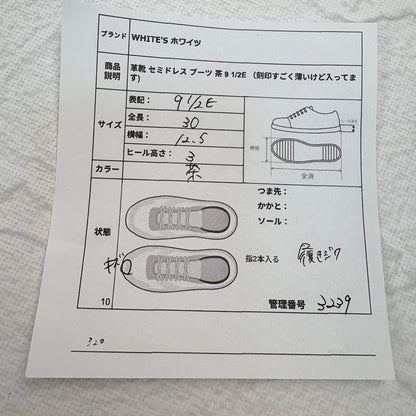 ブランド WHITE'S ホワイツ
商品説明 革靴 セミドレス ブーツ 茶 9 1/2E （刻印すごく薄いけど入ってます)
サイズ
表記： 9 1/2E
全長： 30
横幅： 12.5
ヒール高さ： 3
横幅
全長
カラー 茶
状態
つま先：
かかと：
ソール：
キズ
指2本入る
履きジワ
10
管理番号 3239
320